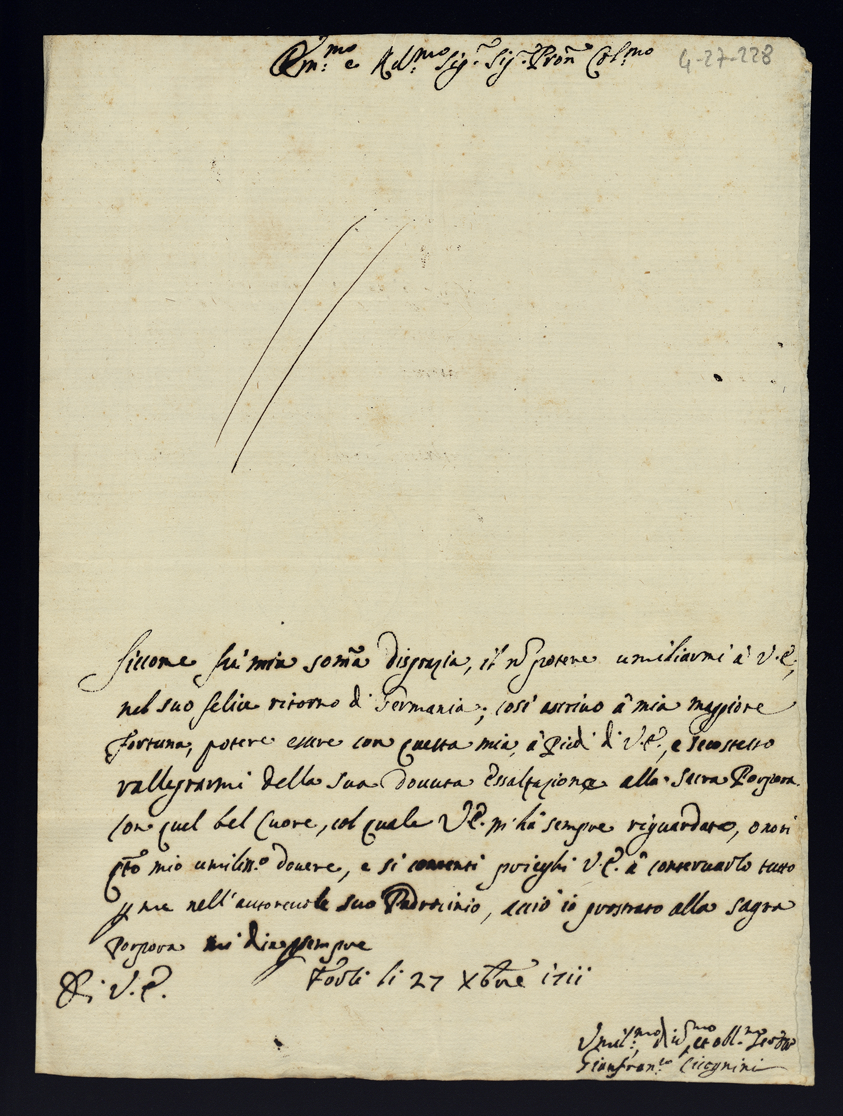 Em.mo e Rd.mo Sig.r Sig.r Pron Col.mo
4-27-228
Siccome fù mia somã disgrazia, il nõ potere umiliarmi à V.E.,
nel suo felice ritorno di Germania; così ascrivo à mia maggiore
fortuna, potere essere con questa mia, à Piedi di V.E., e secostesso
rallegrarmi della sua douuta Essaltazione alla Sacra Porpora.
Con quel bel Cuore, col quale V.E. m'hà sempre riguardato, onori
qto mio umiliss.o douere, e si contenti prieghi V.E. à conseruarlo tutto
p me nell'autoreuole suo Padrocinio, acciò io prostrato alla sagra
Porpora mi dia p sempre
Di V.E. Forlì li 27 Xbre 1711
Umil.mo et obl.mo
Gianfran.co Cicognini